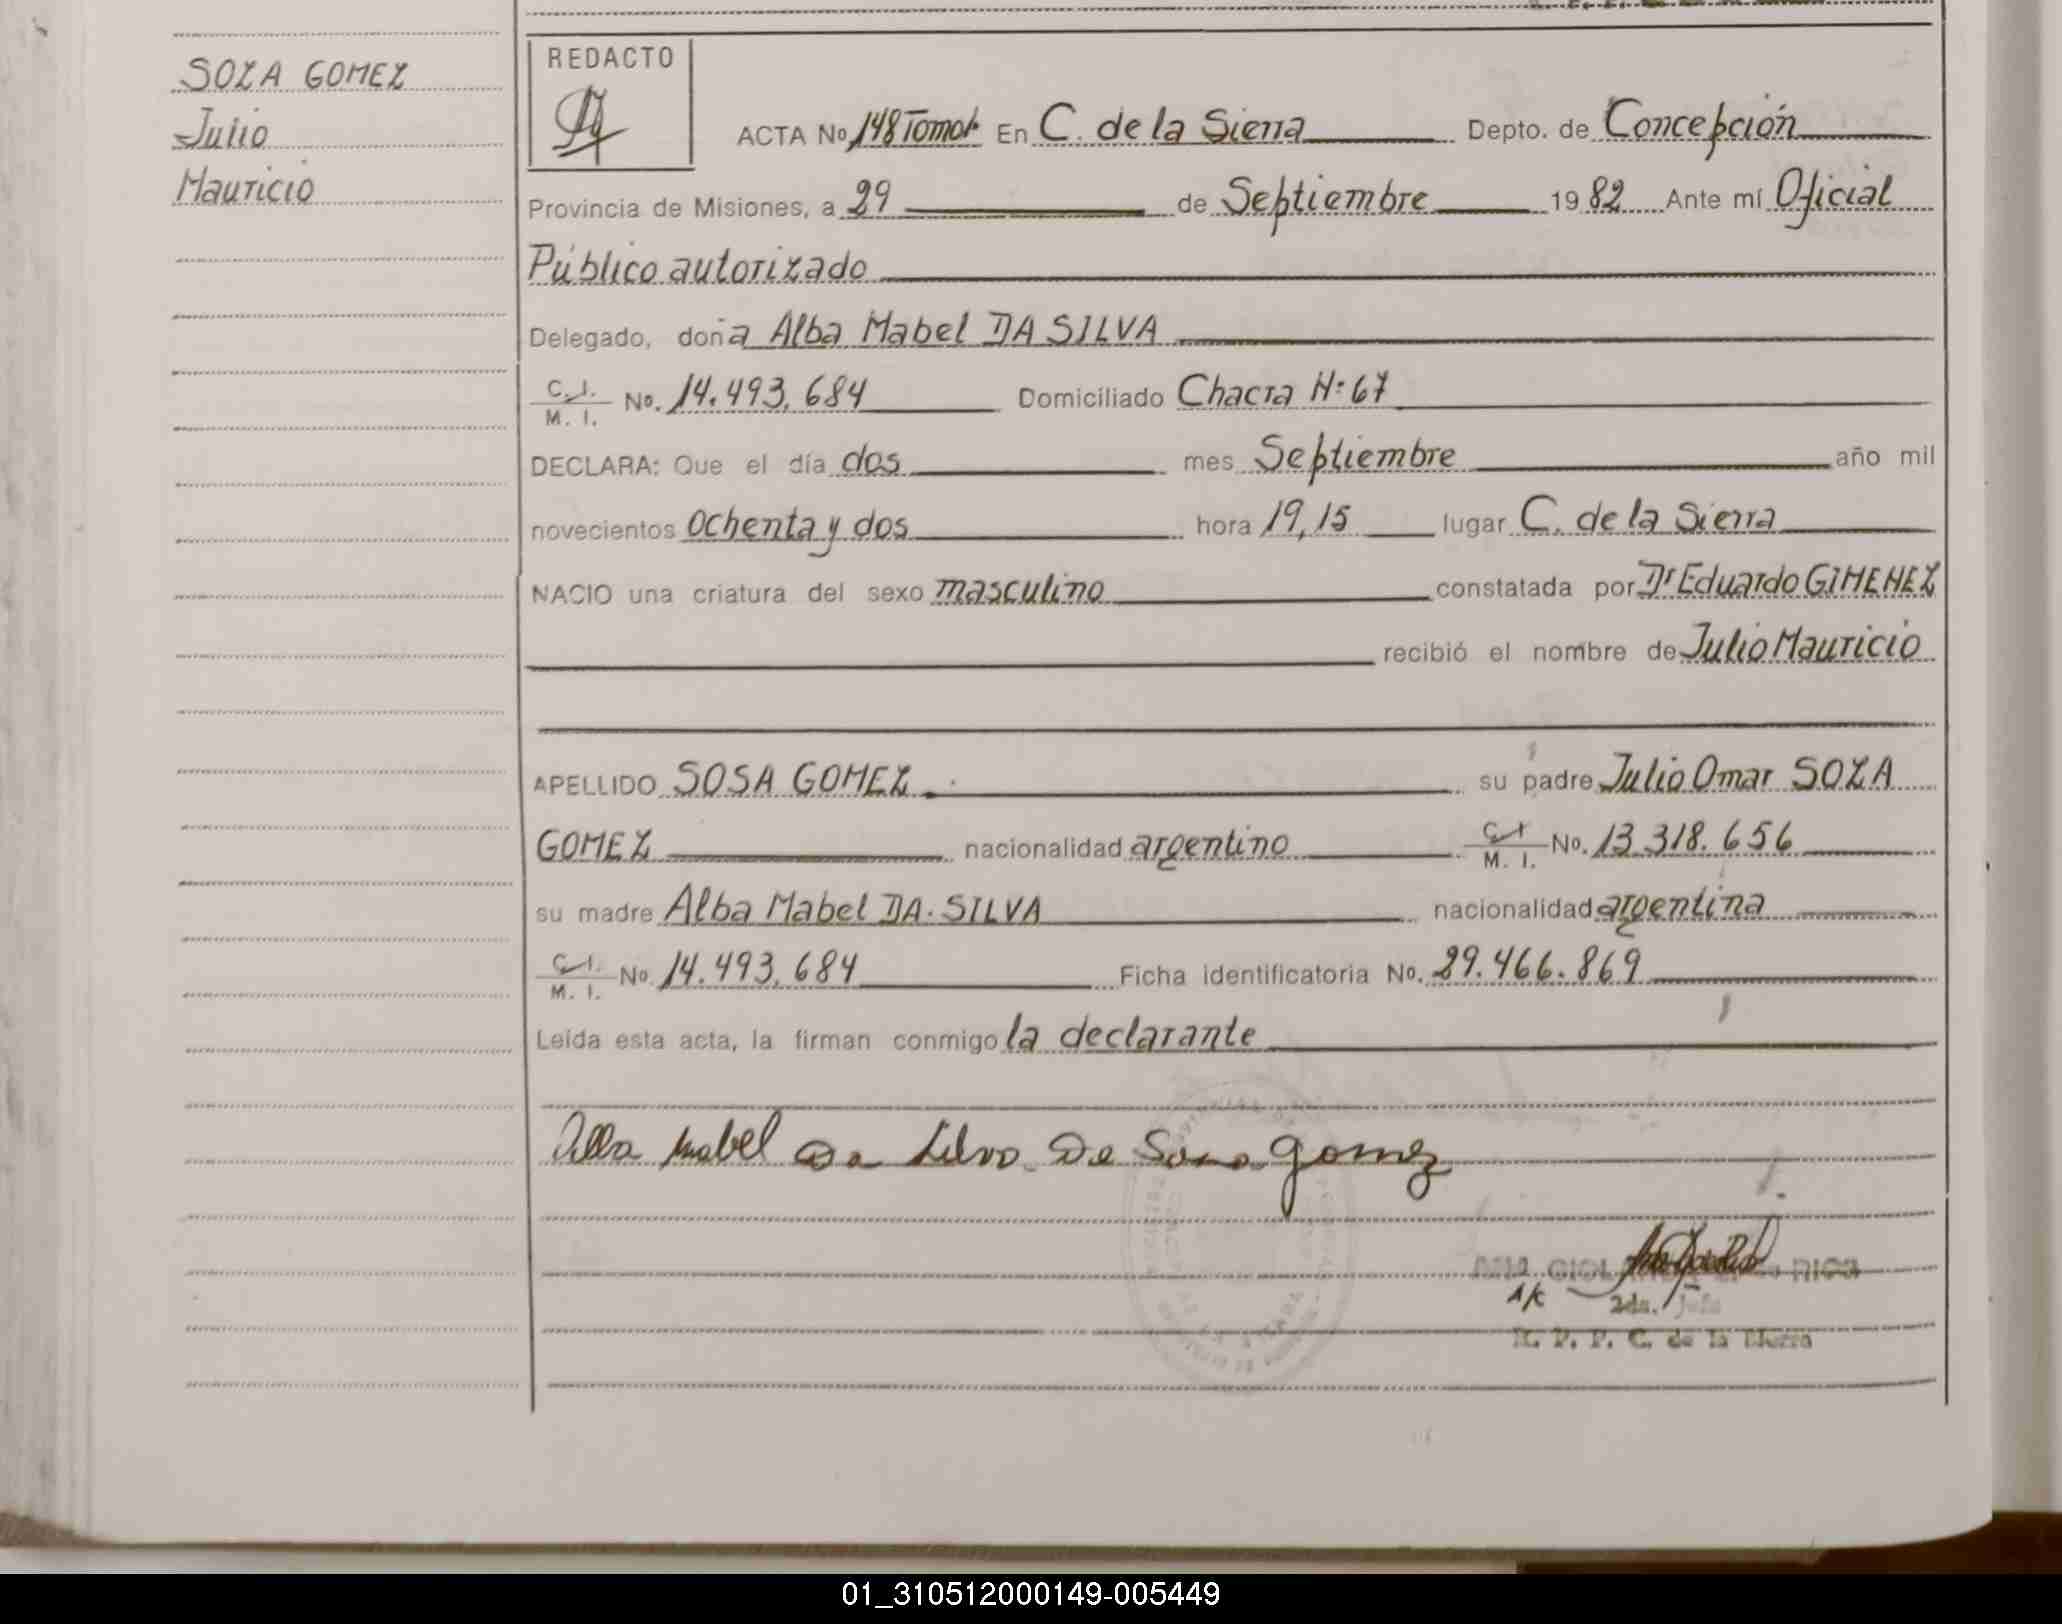 SOZA GOMEZ
Julio
Mauricio
REDACTO
ACTA No 148 Tomo I: En C. de la Sierra Depto. de Concepción
Provincia de Misiones, a 29 de Septiembre 1982 Ante mí Oficial
Público autorizado
Delegado, doña Alba Mabel DA SILVA
C. I.
M. I. No. 14.493.684 Domiciliado Chacra N: 67
DECLARA: Que el día dos mes Septiembre año mil
novecientos ochenta y dos hora 19,15 lugar C. de la Sierra
NACIO una criatura del sexo masculino constatada por Dr Eduardo GIMENEZ
recibió el nombre de Julio Mauricio
APELLIDO SOSA GOMEZ su padre Julio Omar SOZA
GOMEZ nacionalidad argentino C. I.
M. I. No. 13.318.656
su madre Alba Mabel DA. SILVA nacionalidad argentina
C. I.
M. I. No. 14.493.684 Ficha identificatoria No. 29.466.869
Leída esta acta, la firman conmigo la declarante
Alba Mabel Da Silva De Sosa Gomez
A/C 2da. Jefa
R. P. P. C. de la Sierra
01_310512000149-005449